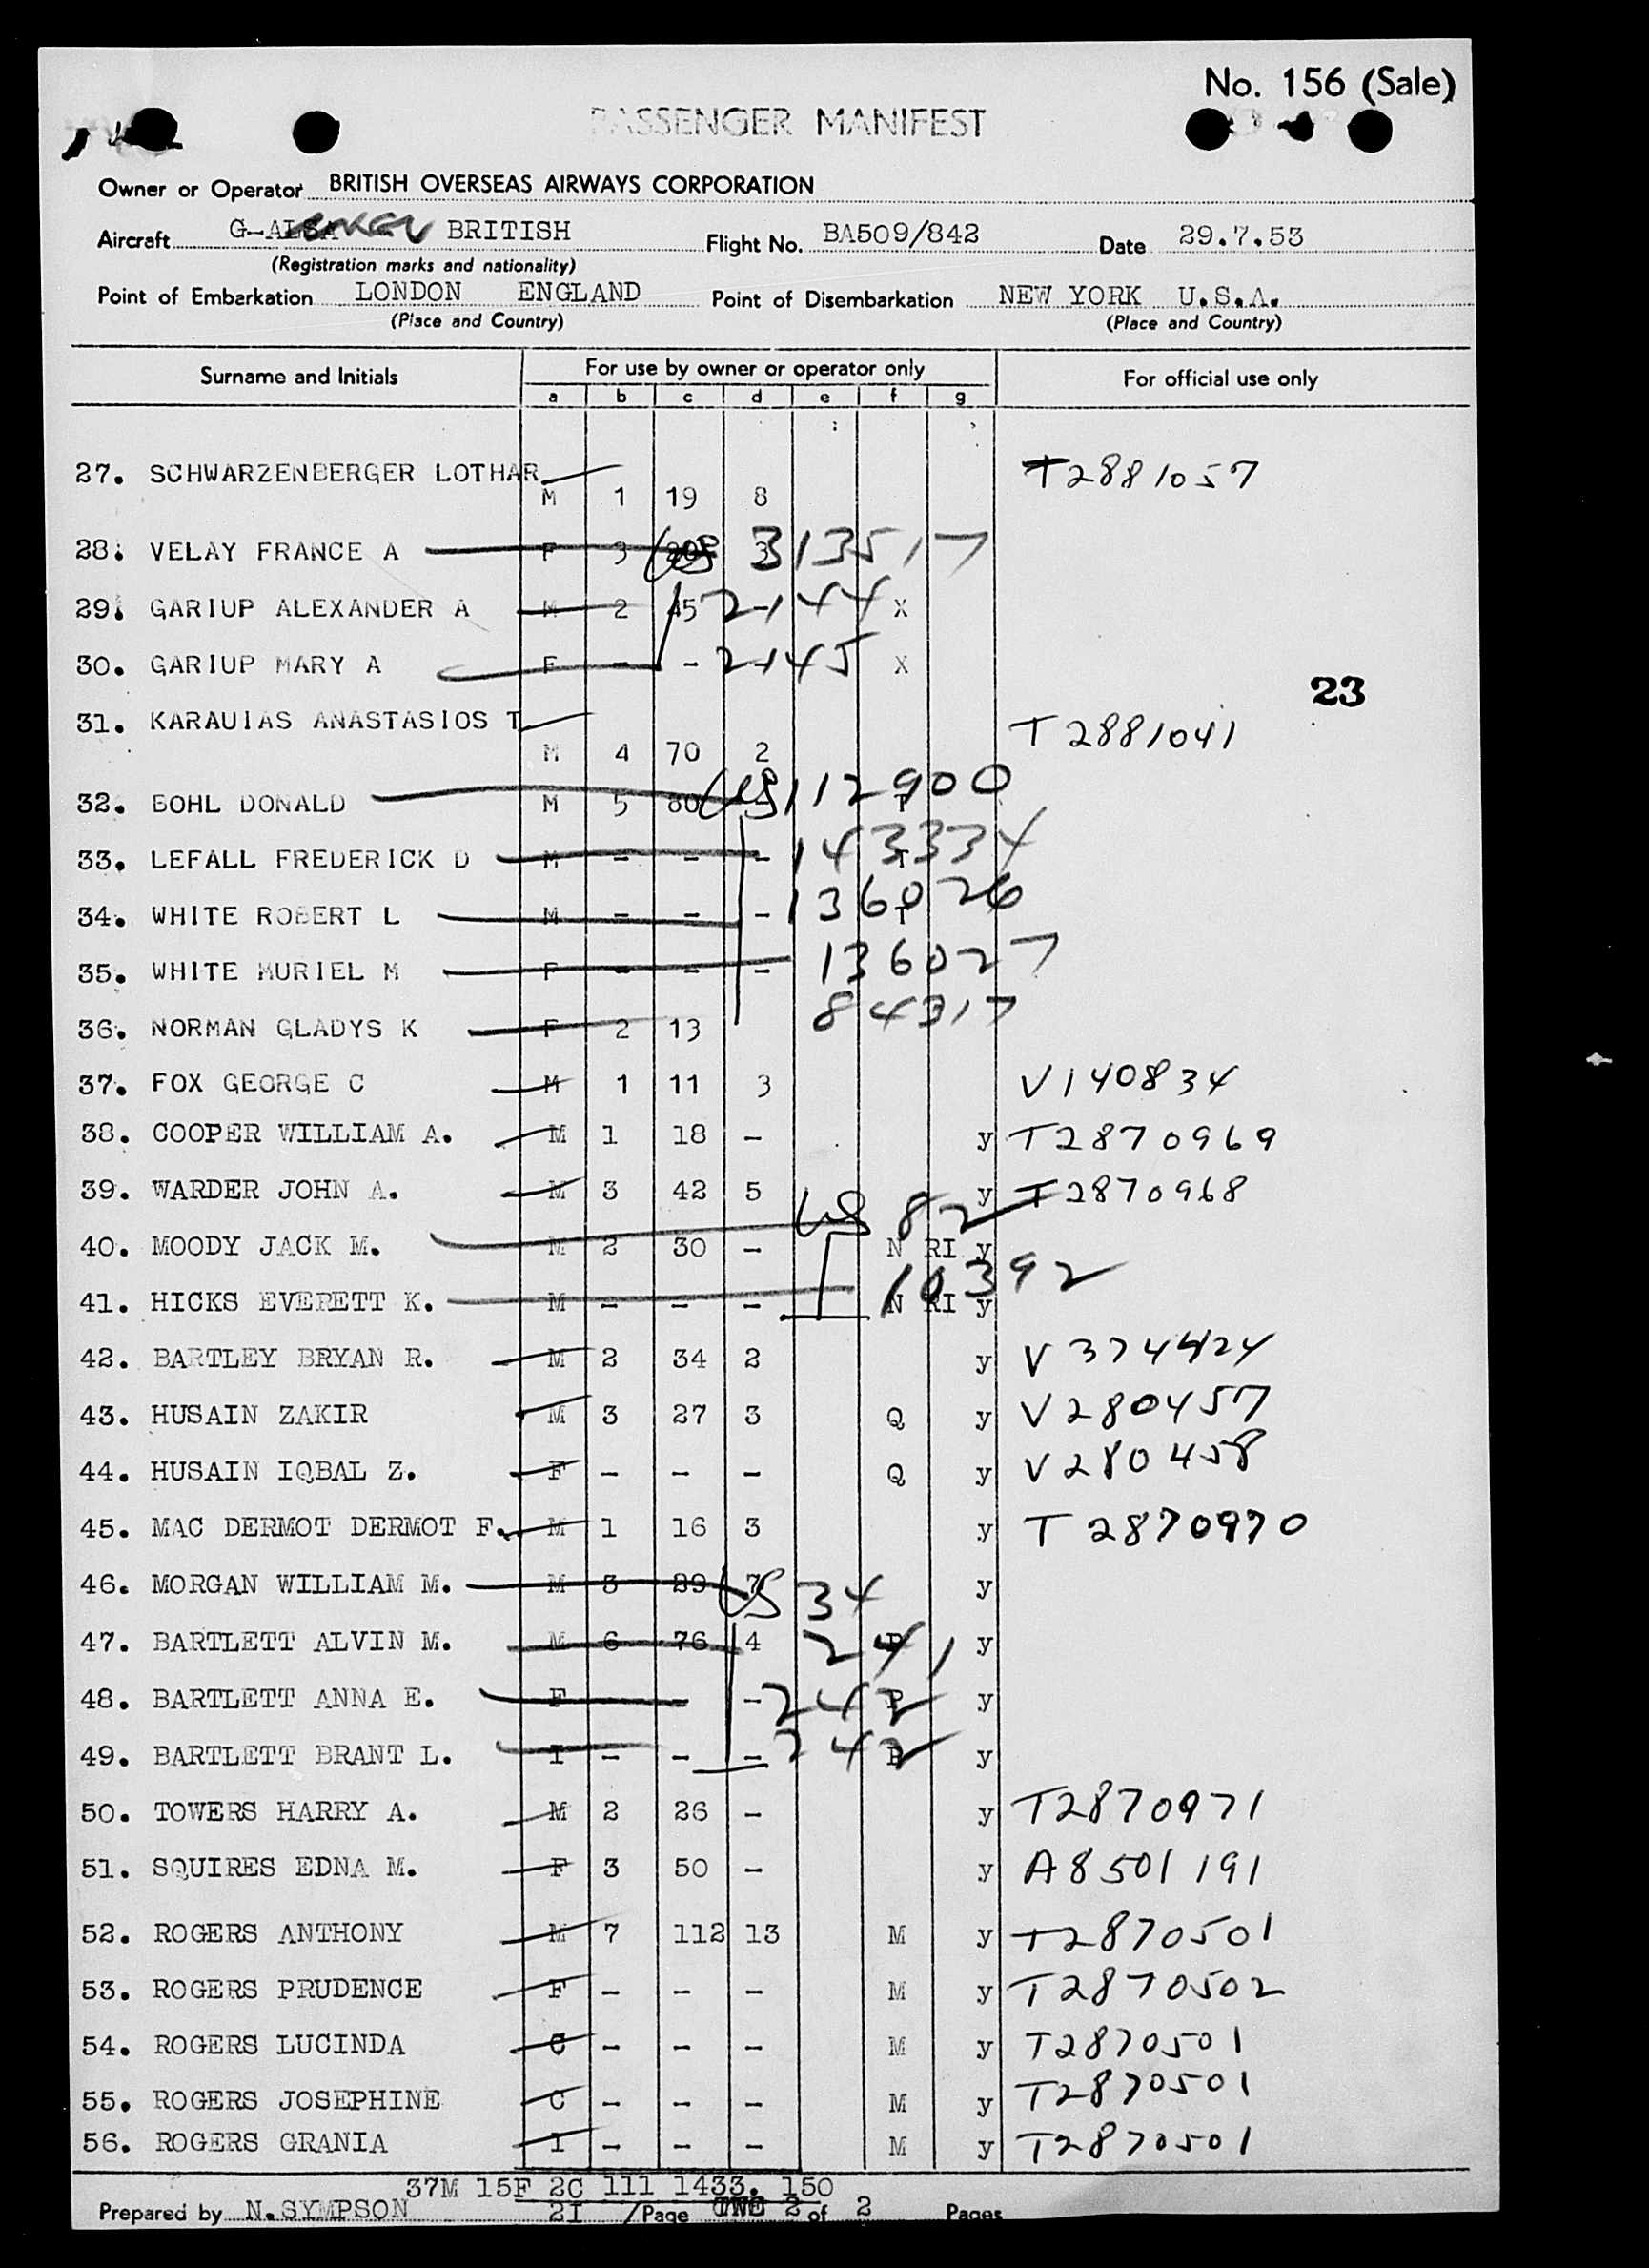 No. 156 (Sale)
PASSENGER MANIFEST
Owner or Operator BRITISH OVERSEAS AIRWAYS CORPORATION
Aircraft G-ALSA BRITISH Flight No. BA509/842 Date 29.7.53
(Registration marks and nationality)
Point of Embarkation LONDON ENGLAND Point of Disembarkation NEW YORK U.S.A.
(Place and Country) (Place and Country)
Surname and Initials For use by owner or operator only For official use only
a b c d e f g
27. SCHWARZENBERGER LOTHAR M 1 19 8 T2881057
28. VELAY FRANCE A F 3 US 313517
29. GARIUP ALEXANDER A M 2 45 2144 X
30. GARIUP MARY A F - - 2145 X
23
31. KARAUIAS ANASTASIOS T M 4 70 2 T2881041
32. BOHL DONALD M 5 80 US 112900
33. LEFALL FREDERICK D M - - - 143334 T
34. WHITE ROBERT L M - - - 136026 T
35. WHITE MURIEL M F - - - 136027
36. NORMAN GLADYS K F 2 13 84317
37. FOX GEORGE C M 1 11 3 V140834
38. COOPER WILLIAM A. M 1 18 - y T2870969
39. WARDER JOHN A. M 3 42 5 y T2870968
40. MOODY JACK M. M 2 30 - US 82 N RI y
41. HICKS EVERETT K. M - - - 10392 N RI y
42. BARTLEY BRYAN R. M 2 34 2 y V374424
43. HUSAIN ZAKIR M 3 27 3 Q y V280457
44. HUSAIN IQBAL Z. F - - - Q y V280458
45. MAC DERMOT DERMOT F. M 1 16 3 y T2870970
46. MORGAN WILLIAM M. M 3 29 7 US 34 y
47. BARTLETT ALVIN M. M 6 76 4 241 P y
48. BARTLETT ANNA E. F - - - 242 P y
49. BARTLETT BRANT L. I - - - 242 P y
50. TOWERS HARRY A. M 2 26 - y T2870971
51. SQUIRES EDNA M. F 3 50 - y A8501191
52. ROGERS ANTHONY M 7 112 13 M y T2870501
53. ROGERS PRUDENCE F - - - M y T2870502
54. ROGERS LUCINDA C - - - M y T2870501
55. ROGERS JOSEPHINE C - - - M y T2870501
56. ROGERS GRANIA I - - - M y T2870501
37M 15F 2C 111 1433. 150
Prepared by N.SYMPSON 2I /Page 2 of 2 Pages